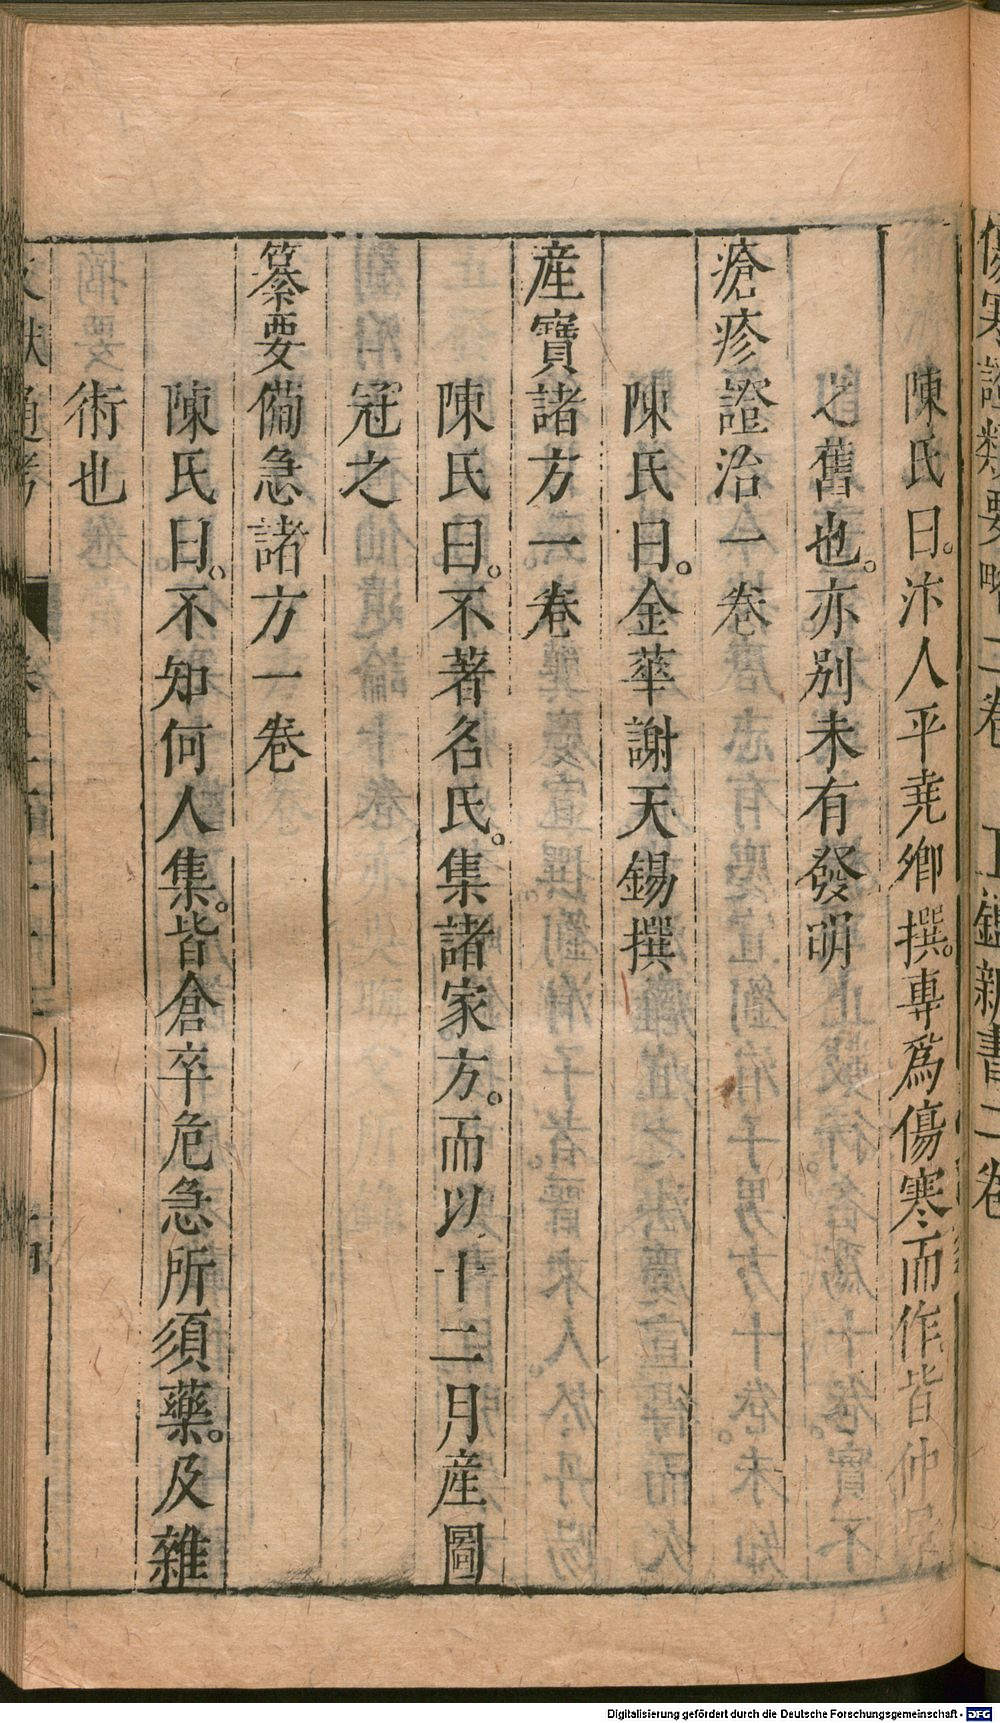 陳氏曰。汴人平堯卿撰。專爲傷寒而作皆仲景
之舊也。亦別未有發明
瘡疹證治一卷
陳氏曰。金華謝天錫撰
産寶諸方一卷
陳氏曰。不著名氏。集諸家方。而以十二月産圖
冠之
纂要備急諸方一卷
陳氏曰。不知何人集。皆倉卒危急所須藥。及雜
術也
Digitalisierung gefördert durch die Deutsche Forschungsgemeinschaft - DFG